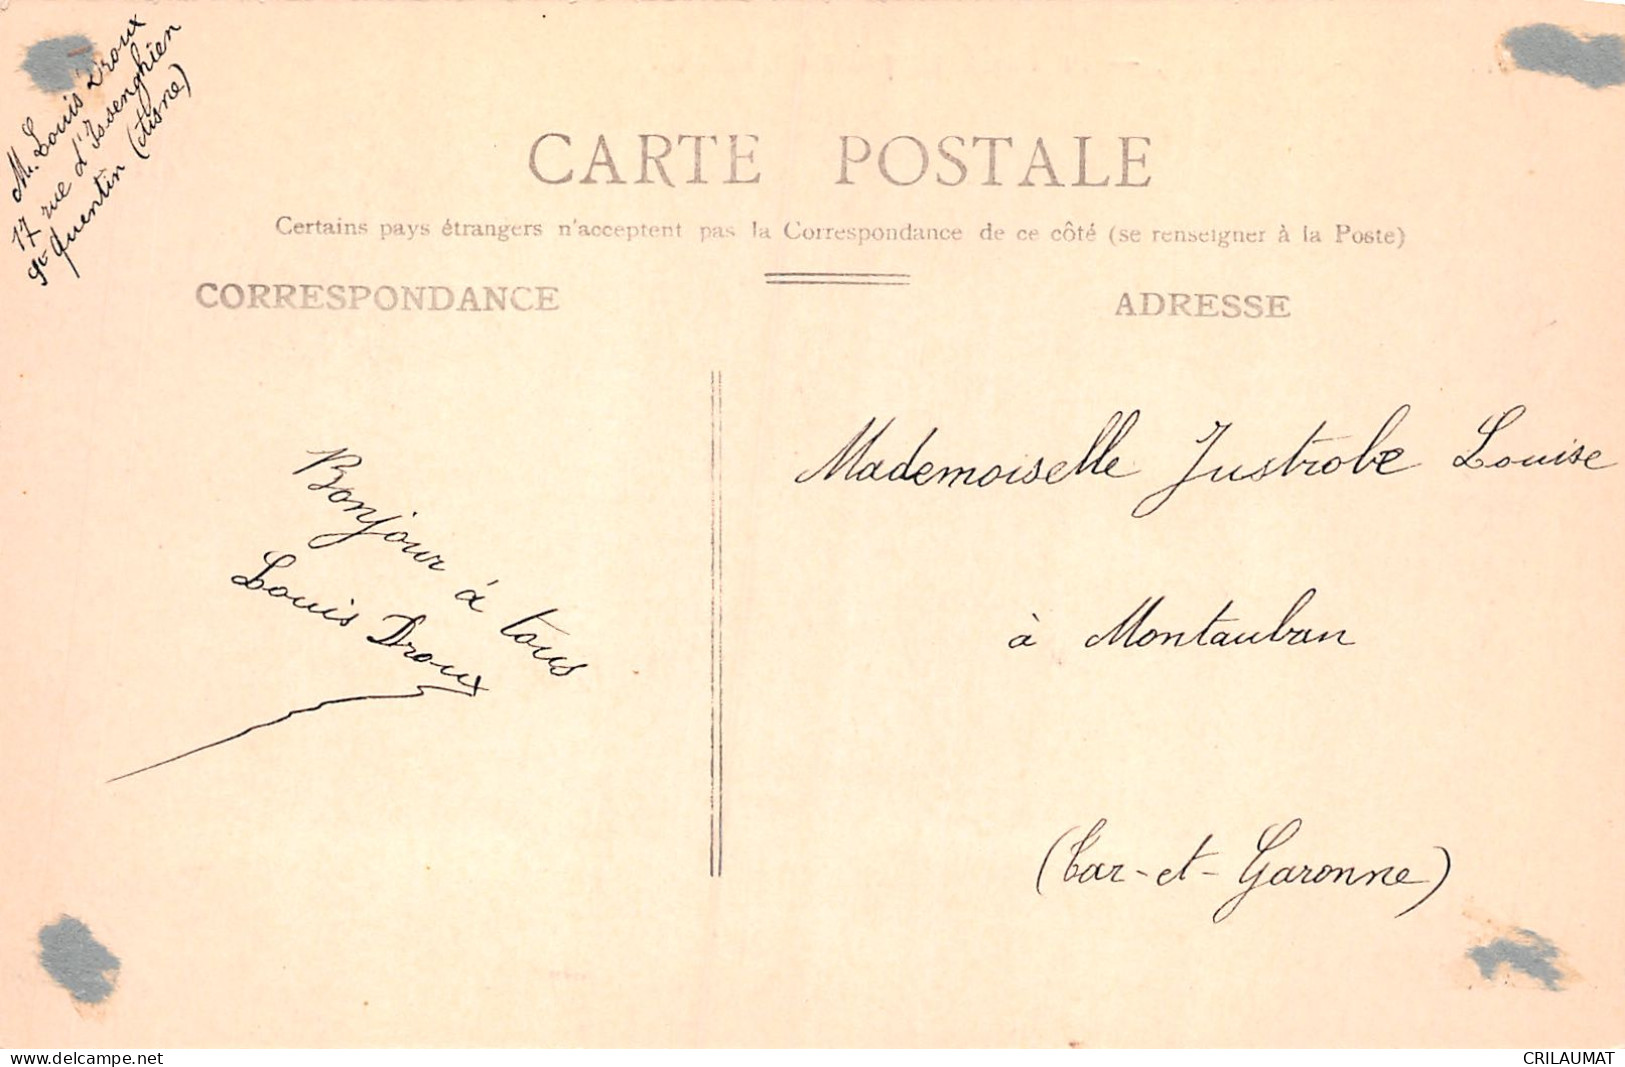 M. Louis Droux
17 rue d'Issenghien
St Quentin (Aisne)
CARTE POSTALE
Certains pays étrangers n'acceptent pas la Correspondance de ce côté (se renseigner à la Poste)
CORRESPONDANCE
ADRESSE
Bonjour à tous
Louis Droux
Mademoiselle Justrobe Louise
à Montauban
(Tar-et-Garonne)
www.delcampe.net
CRILAUMAT